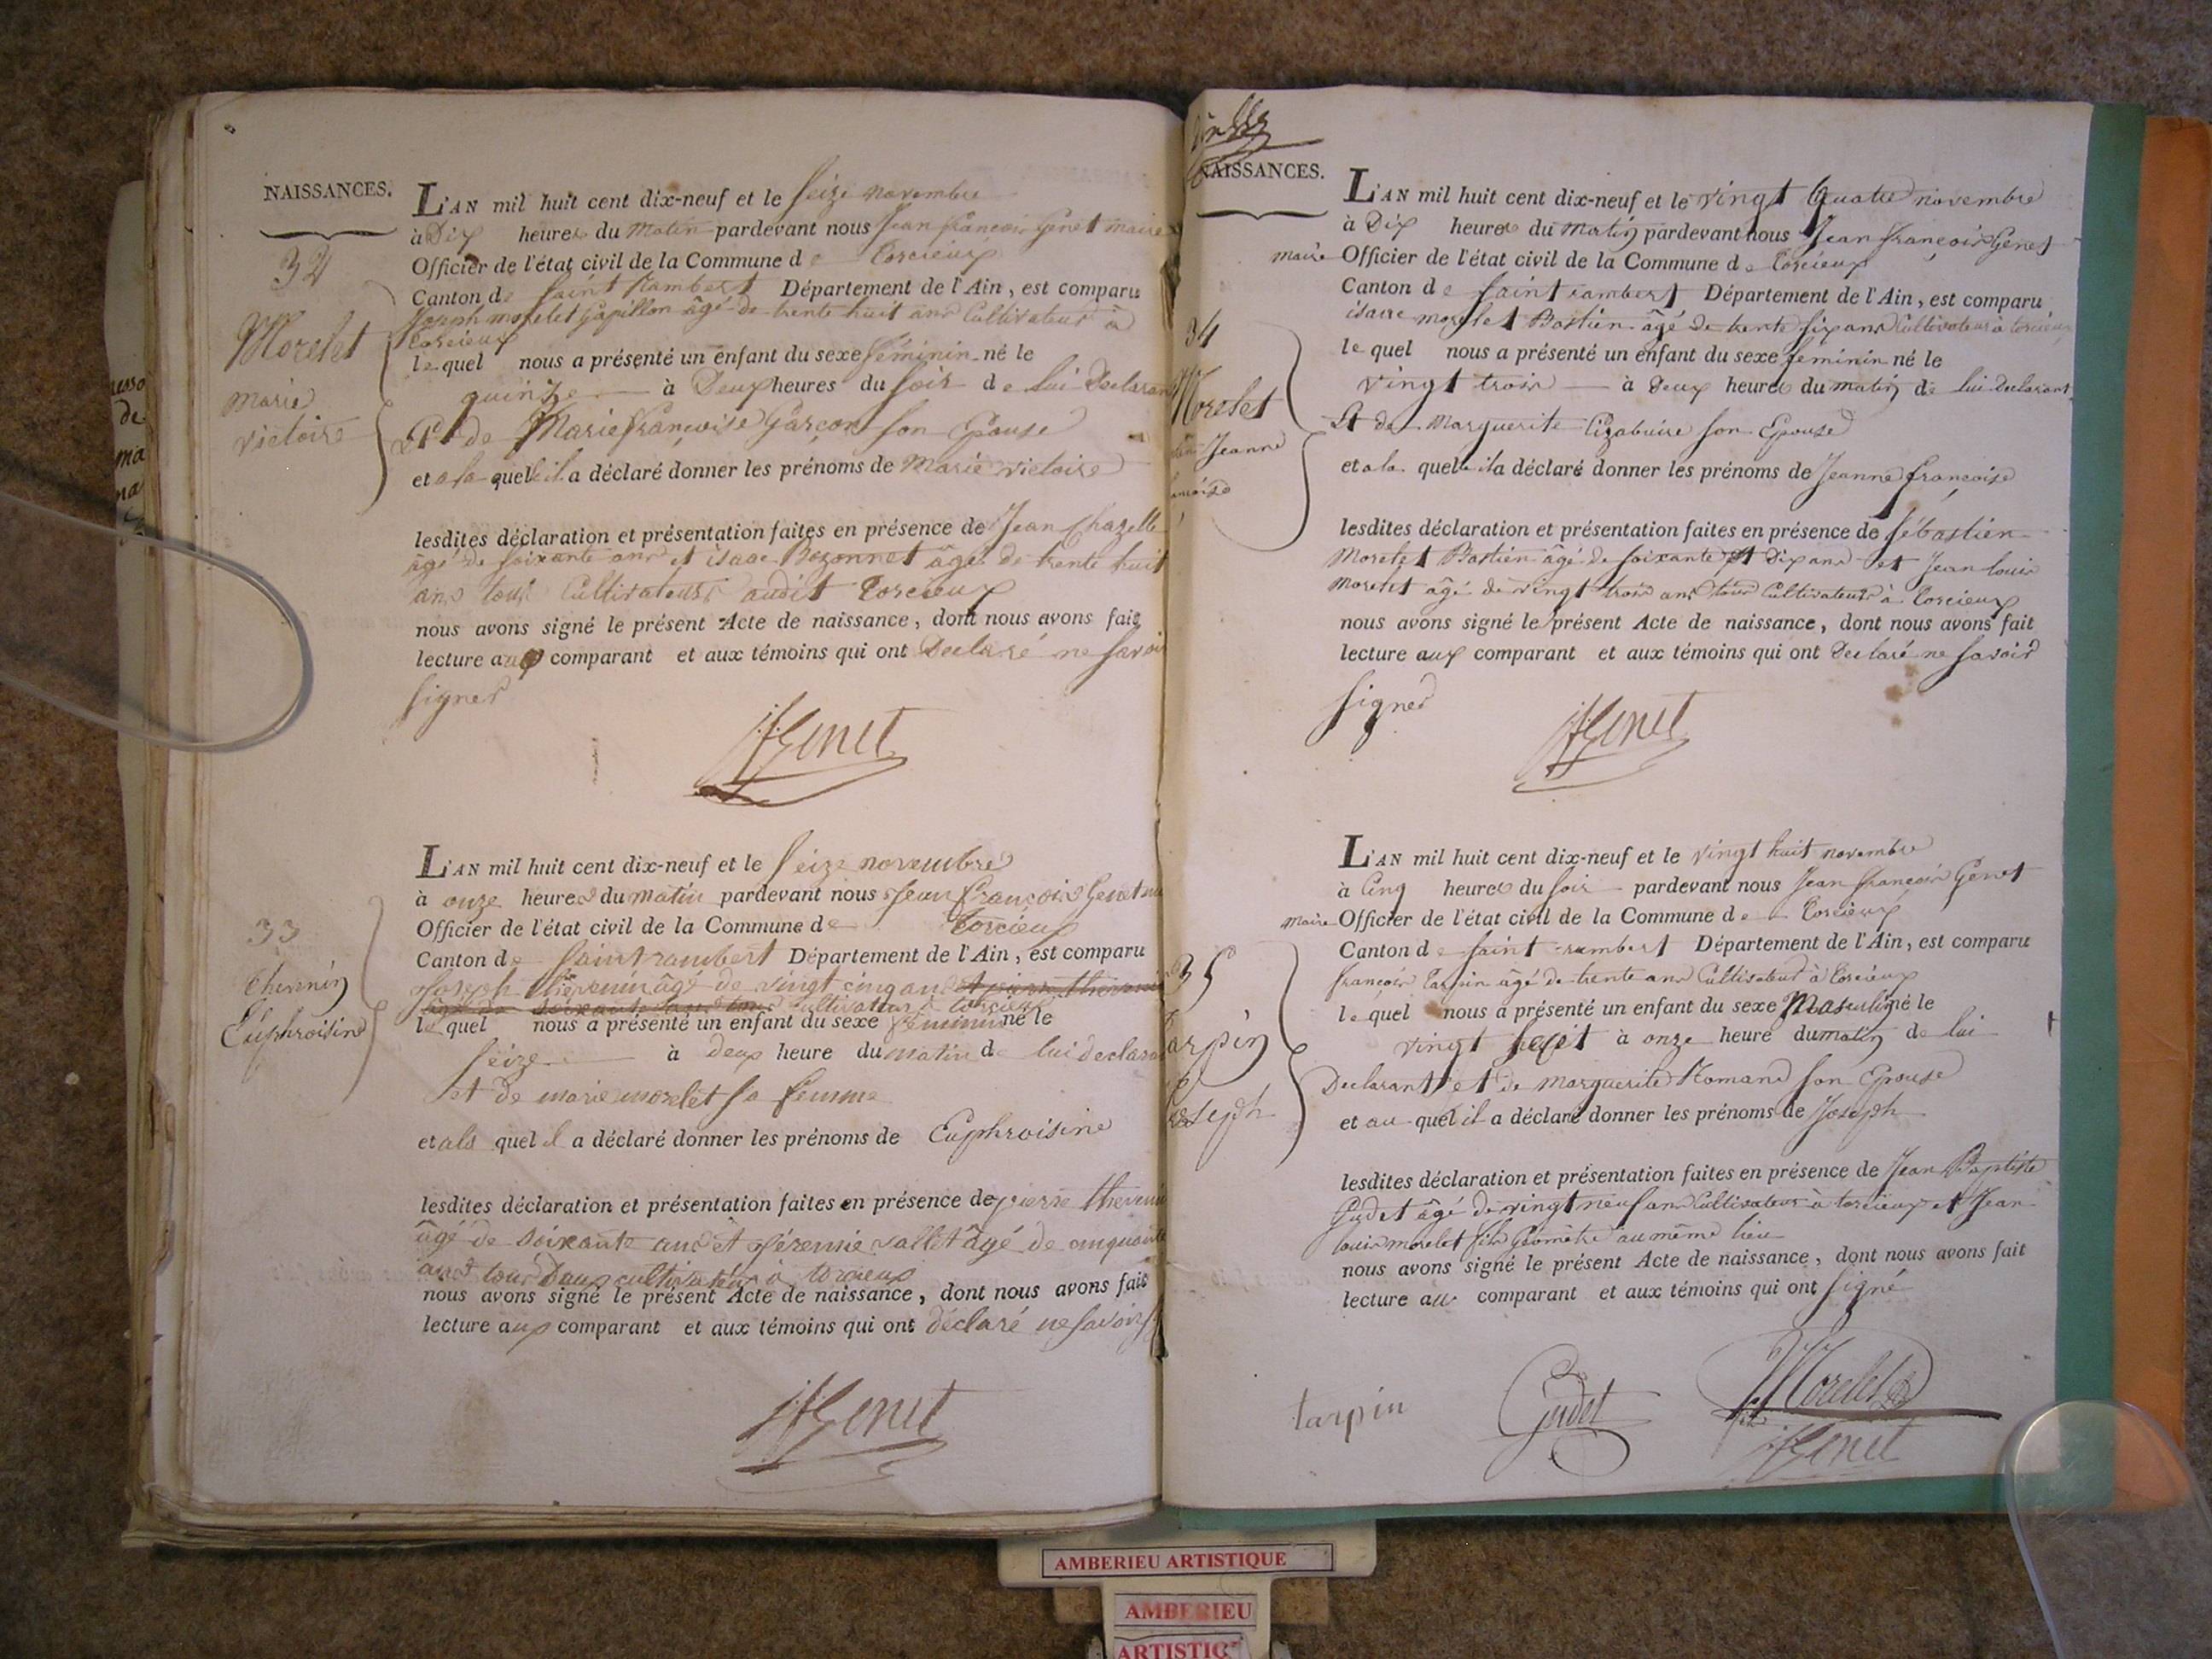 NAISSANCES.
32
Morelet
Marie
victoire
L'AN mil huit cent dix-neuf et le seize novembre
à Dix heures du Matin pardevant nous Jean françois Genet maire
Officier de l'état civil de la Commune de Torcieux
Canton de saint Rambert Département de l'Ain, est comparu
Joseph morelet Gapillon âgé de trente huit ans Cultivateur à
Torcieux
le quel nous a présenté un enfant du sexe féminin né le
quinze à Deux heures du soir de lui Declarant
Et de Marie françoise Garçon son Epouse
et a la quelle il a déclaré donner les prénoms de Marie victoire
lesdites déclaration et présentation faites en présence de Jean Chazelle
âgé de soixante ans et isaac Bozonnet âgé de trente huit
ans tous Cultivateurs audit Torcieux
nous avons signé le présent Acte de naissance, dont nous avons fait
lecture aux comparant et aux témoins qui ont Declaré ne savoir
signer
jfGenet
33
thevenin
Euphroisine
L'AN mil huit cent dix-neuf et le seize novembre
à onze heures du matin pardevant nous Jean françois Genet
Officier de l'état civil de la Commune de Torcieux
Canton de saint rambert Département de l'Ain, est comparu
Joseph thevenin âgé de vingt cinq ans et pierre thevenin
âgé de soixante ans tous cultivateur à torcieux
le quel nous a présenté un enfant du sexe féminin né le
seize à deux heure du matin de lui declarant
et de marie morelet sa femme
et a la quel il a déclaré donner les prénoms de Euphroisine
lesdites déclaration et présentation faites en présence de pierre thevenin
âgé de soixante ans et jérémie vallet âgé de cinquante
ans tous Deux cultivateur à torcieux
nous avons signé le présent Acte de naissance, dont nous avons fait
lecture aux comparant et aux témoins qui ont déclaré ne savoir
jfGenet
NAISSANCES.
34
Morelet
Jeanne
L'AN mil huit cent dix-neuf et le vingt Quatre novembre
à Dix heures du matin pardevant nous Jean françois Genet
maire Officier de l'état civil de la Commune de Torcieux
Canton de saint rambert Département de l'Ain, est comparu
isaac morelet Bastien âgé de trente six ans Cultivateur à torcieux
le quel nous a présenté un enfant du sexe feminin né le
vingt trois à Deux heures du matin de lui Declarant
Et de Marguerite son Epouse
et a la quelle il a déclaré donner les prénoms de Jeanne françoise
lesdites déclaration et présentation faites en présence de sébastien
Morelet Bastien âgé de soixante et Dix ans et Jean louis
Morelet âgé de vingt trois ans tous Cultivateurs à Torcieux
nous avons signé le présent Acte de naissance, dont nous avons fait
lecture aux comparant et aux témoins qui ont Declaré ne savoir
signer
jfGenet
35
tarpin
Joseph
L'AN mil huit cent dix-neuf et le vingt huit novembre
à Cinq heures du soir pardevant nous Jean françois Genet
maire Officier de l'état civil de la Commune de Torcieux
Canton de saint rambert Département de l'Ain, est comparu
françois tarpin âgé de trente ans Cultivateur à Torcieux
le quel nous a présenté un enfant du sexe Masculin né le
vingt huit à onze heure du matin de lui
Declarant et de marguerite Romand son Epouse
et au quel il a déclaré donner les prénoms de Joseph
lesdites déclaration et présentation faites en présence de Jean Baptiste
Gudet âgé de vingt neuf ans Cultivateur à torcieux et Jean
louis morelet fils Géomètre au même lieu
nous avons signé le présent Acte de naissance, dont nous avons fait
lecture au comparant et aux témoins qui ont signé
tarpin Gudet Morelet
fils
jfGenet
AMBERIEU ARTISTIQUE
AMBERIEU
ARTISTIQ